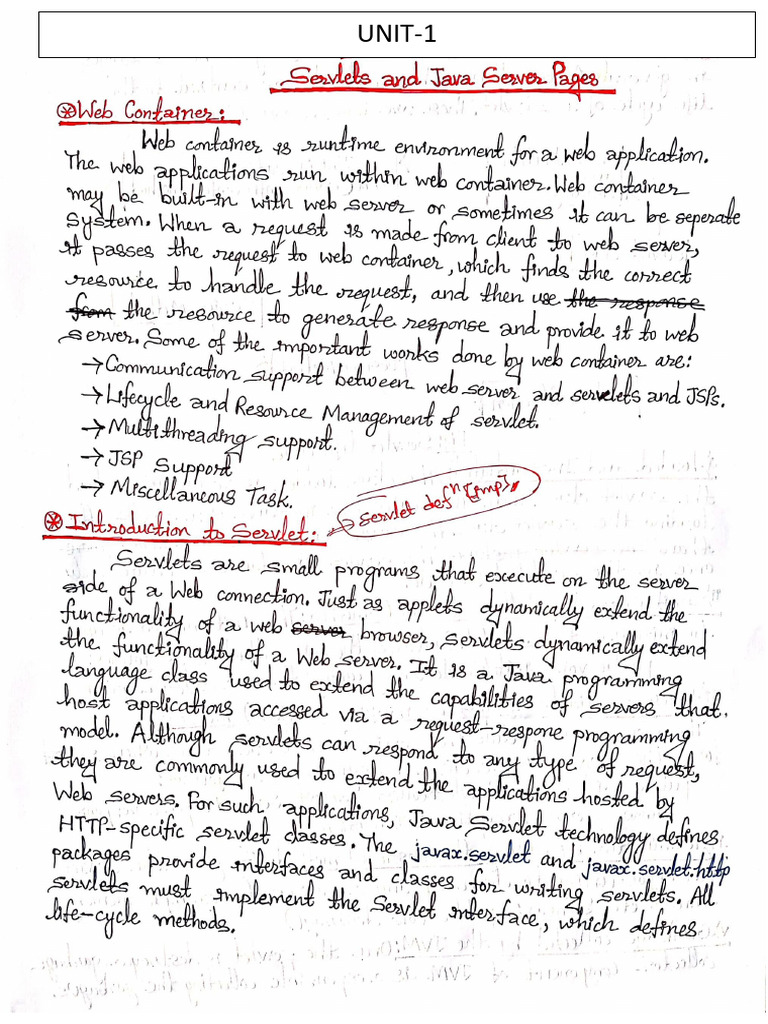 UNIT-1
Servlets and Java Server Pages
⊛Web Container:
Web container is runtime environment for a web application.
The web applications run within web container. Web container
may be built-in with web server or sometimes it can be seperate
system. When a request is made from client to web server,
it passes the request to web container, which finds the correct
resource to handle the request, and then use the response
from the resource to generate response and provide it to web
server. Some of the important works done by web container are:
→Communication support between web server and servlets and JSPs.
→Lifecycle and Resource Management of servlet.
→Multithreading support.
→JSP Support
→Miscellaneous Task.
⊛Introduction to Servlet: → servlet defⁿ [imp]
Servlets are small programs that execute on the server
side of a Web connection. Just as applets dynamically extend the
functionality of a web server browser, servlets dynamically extend
the functionality of a Web server. It is a Java programming
language class used to extend the capabilities of servers that
host applications accessed via a request-respone programming
model. Although servlets can respond to any type of request,
they are commonly used to extend the applications hosted by
Web servers. For such applications, Java Servlet technology defines
HTTP-specific servlet classes. The javax.servlet and javax.servlet.http
packages provide interfaces and classes for writing servlets. All
servlets must implement the Servlet interface, which defines
life-cycle methods.